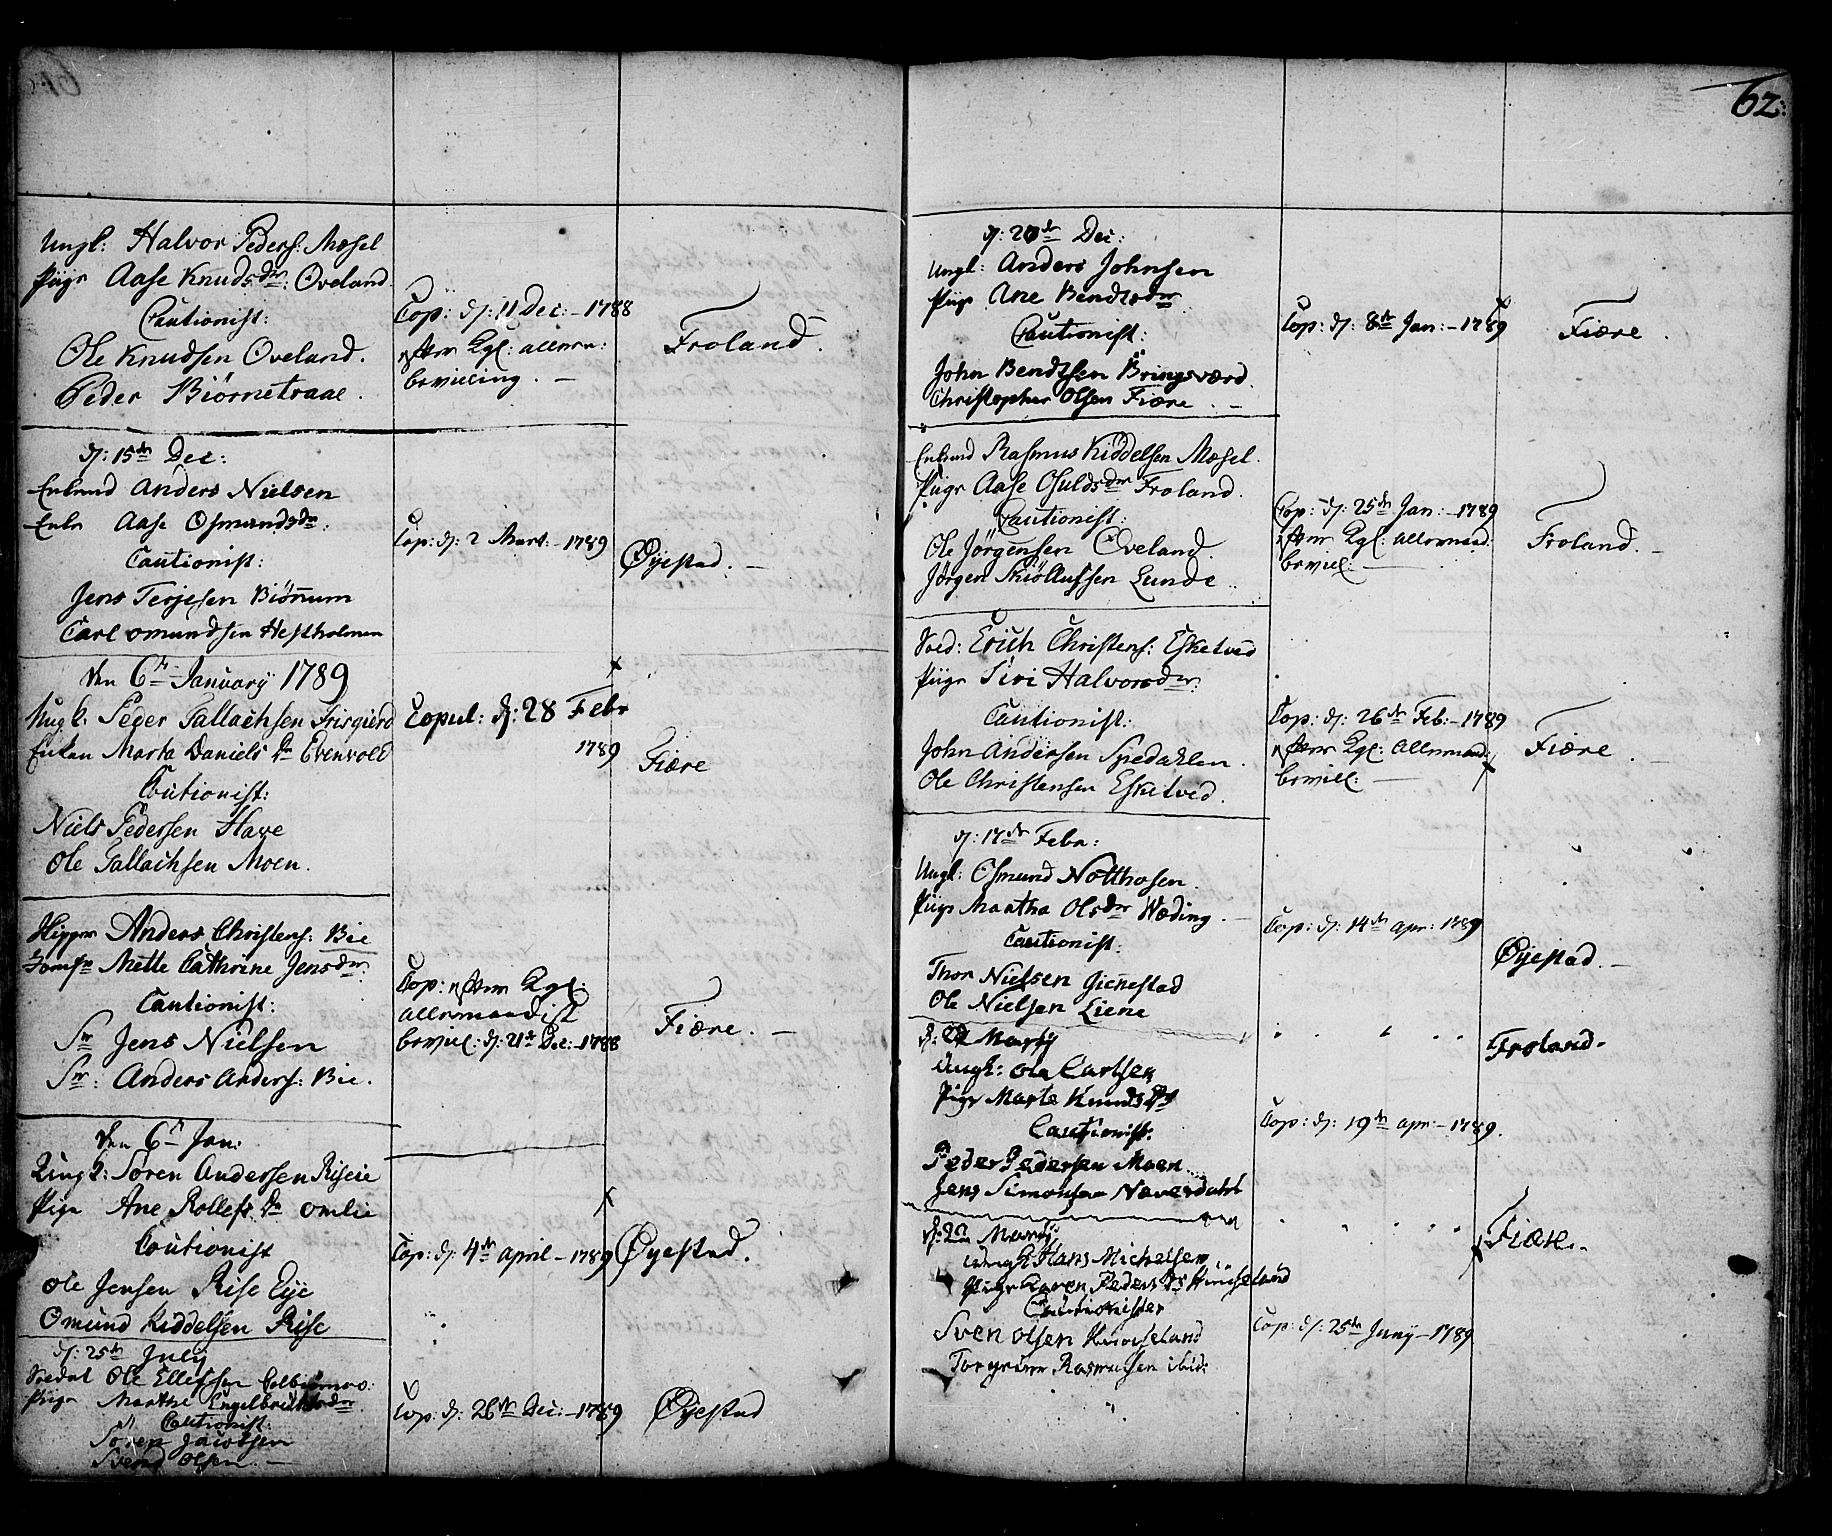 62:
Ungl: Halvor Peders: Mæsel
Pige Aase Knudsdr: Oveland
Cautionist:
Ole Knudsen Oveland.
Peder Biørnetraae.
Cop: d: 11 Dec: - 1788
efter Kgl: allern:
bevilling. -
Froland.
d: 15de Dec:
Enkmd Anders Nielsen
Enke Aase Osmundsdr:
Cautionist:
Jens Terjesen Biønnum
Carl omundsen Hestholmen
Cop: d: 2 Mart: - 1789
Øyestad. -
den 6te January 1789
Ungk: Peder Tallachsen Frisgierd
Enken Marta Daniels Dr Evenvold
Coutionist:
Niels Pedersen Have
Ole Tallachsen Moen.
Copul: d: 28 Febr
1789
Fiære
Anders Christens: Bie
Jomfr Mette Cathrine Jensdr:
Cautionist:
Sr Jens Nielsen
Sr: Anders Anders: Bie.
Cop: efter Kgl:
allernaadist
bevill: d: 21de Dec: - 1788
Fiære. -
den 6te Jan:
Ungk: Søren Andersen Riseie
Pige Ane Rollefs Dr omlie
Coutionist
Ole Jensen Rise Eye
Omund Kiddelsen Rise
Cop: d: 4de April - 1789
Øyestad.
d: 25de July
Ole Ellefsen
Pige Marthe Engelbrechtsdr
Cautionist:
Søren Jacobsen
Svend Olsen. -
Cop: d: 26de Dec: - 1789
Øyestad
d: 20de Dec:
Ungl: Anders Johnsen
Pige Ane Bendtsdr
Cautionist:
John Bendtsen Bringsværd.
Christopher Olsen Fiære. -
Cop: d: 8de Jan: - 1789
Fiære.
Enkmd Rasmus Kiddelsen Mæsel.
Pige Aase Osuldsdr Froland.
Cautionist:
Ole Jørgensen Oveland.
Jørgen Lunde.
Cop: d: 25de Jan: - 1789
efter Kgl: Allernaad:
bevill: -
Froland. -
Erich Christens: Esketved
Pige Siri Halvorsdr:
Cautionist:
John Andersen Spedahlen.
Ole Christensen Esketved.
Cop: d: 26de Feb: - 1789
efter Kgl: Allernaad:
bevill: -
Fiære. -
d: 17de Febr:
Ungl: Osmund Notthosen.
Pige Martha Olsdr Wæding. -
Cautionist:
Thor Nielsen Giennestad
Ole Nielsen Liene
Cop: d: 14de apr: 1789
Øyestad. -
Marty
Ungk: Ole Carlsen
Pige Marte Knuds Dr
Cautionist:
Peder Pedersen Moen
Jens Simonsen Naversdahl
Cop: d: 19de apr: - 1789.
Froland.
d: 20 Marty
Ungk Hans Michelsen
Pige Karen Peders Ds
Cautionister
Sven Olsen
Torgrim Rasmusen ibid:
Cop: d: 25de Juny - 1789
Fiære.